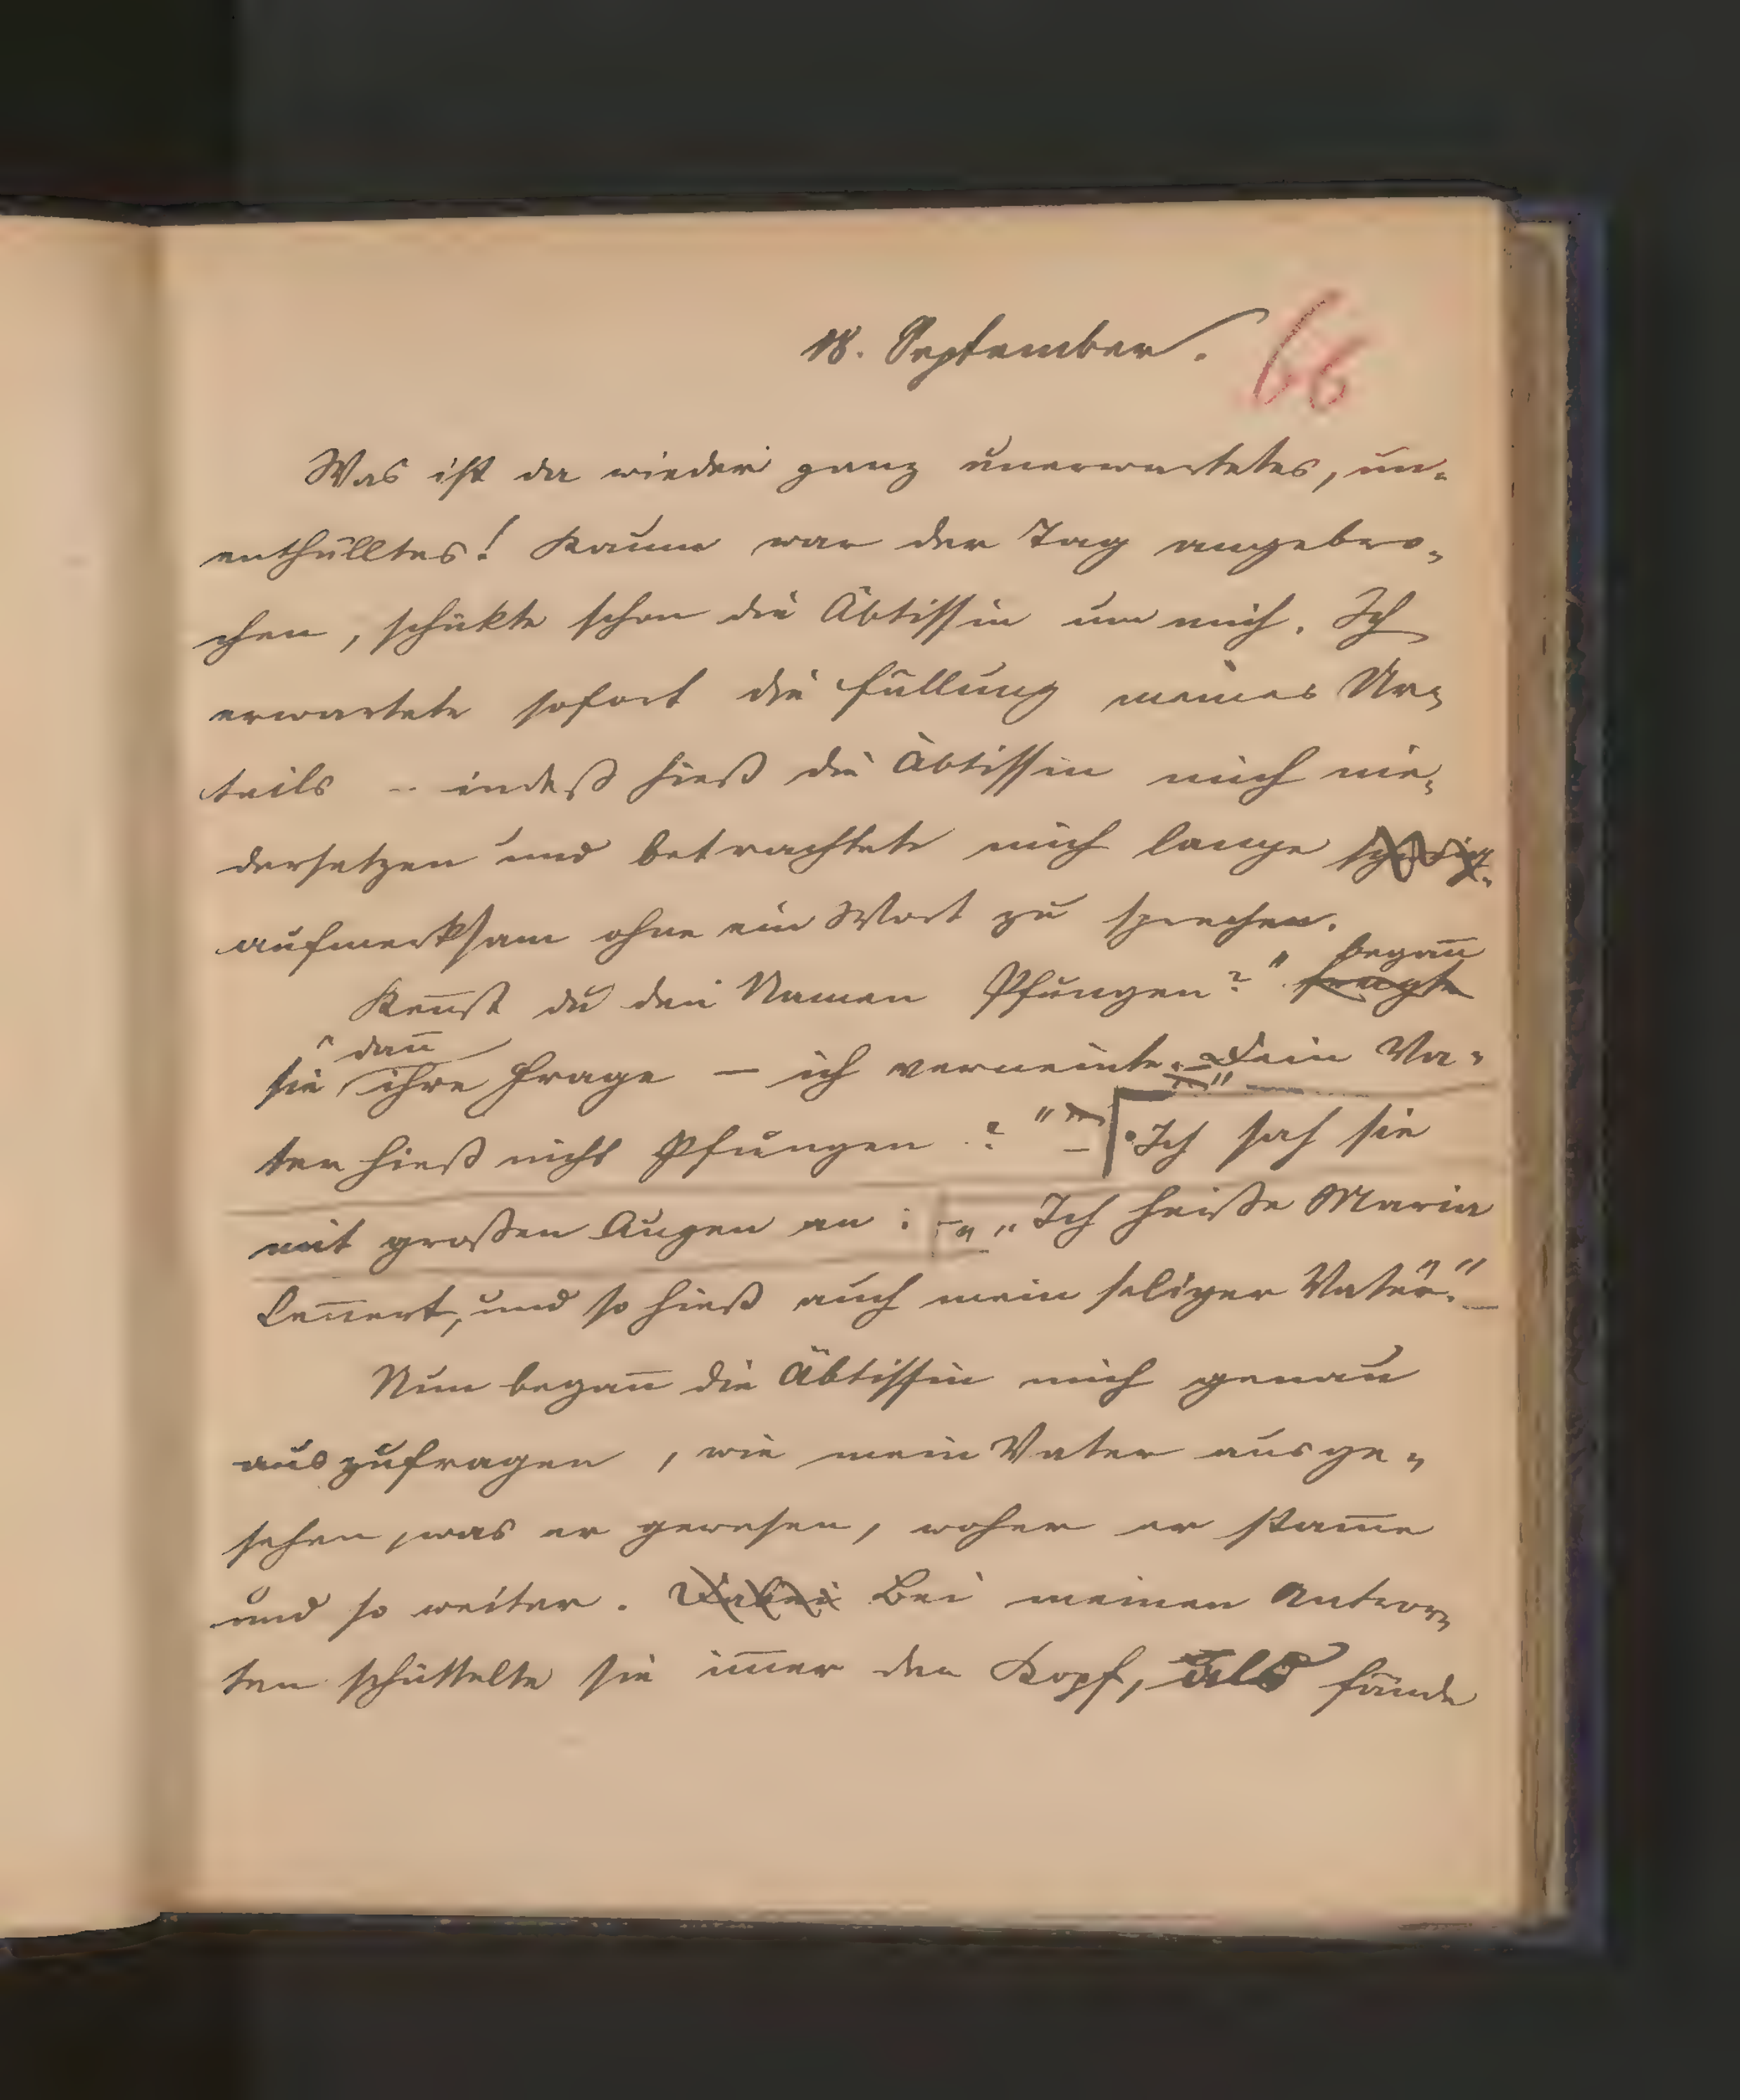 18. September.
66
Was ist da wieder ganz unerwartetes, un-
enthülltes! Kaum war der Tag angebro-
chen, schikte schon die Äbtissin um mich. Ich
erwartete sofort die Fällung meines Ur-
teils - indeß hieß die Äbtissin mich nie-
dersetzen und betrachtete mich lange
aufmerksam ohne ein Wort zu sprechen.
began̅
Ken̅st du den Namen Pfungen?" fragte
dan̅
sie ihre Frage — ich verneinte. – „Dein Va-
ter hieß nicht Pfungen?" – Ich sah sie
mit großen Augen an: – „Ich heiße Maria
Len̅ert, und so hieß auch mein seliger Vater." –
Nun began̅ die Äbtissin mich genau
auszufragen, wie mein Vater ausge-
sehen, was er gewesen, woher er stam̅e
und so weiter. Dabei Bei meinen Antwor-
ten schüttelte sie im̅er den Kopf, als fände